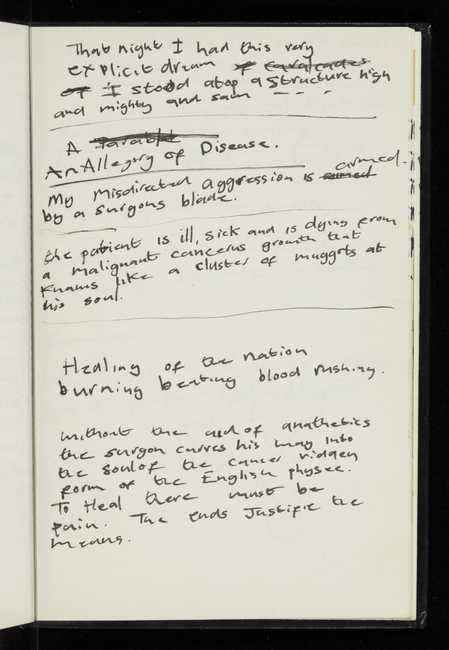 That night I had this very
explicit dream of cavalcades
of I stood atop a structure high
and mighty and saw - - -
A Parable
An Allegory of Disease.
My misdirected aggression is aimed armed-
by a surgons blade.
the patient is ill, sick and is dying from
a malignant cancerus growth that
knaws like a cluster of muggots at
his soul.
Healing of the nation
burning beating blood rushing.
without the aid of anathetics
the surgon carves his way into
the soul of the cancer ridden
form of the English physce.
To Heal there must be
pain. The ends Justifie the
means.